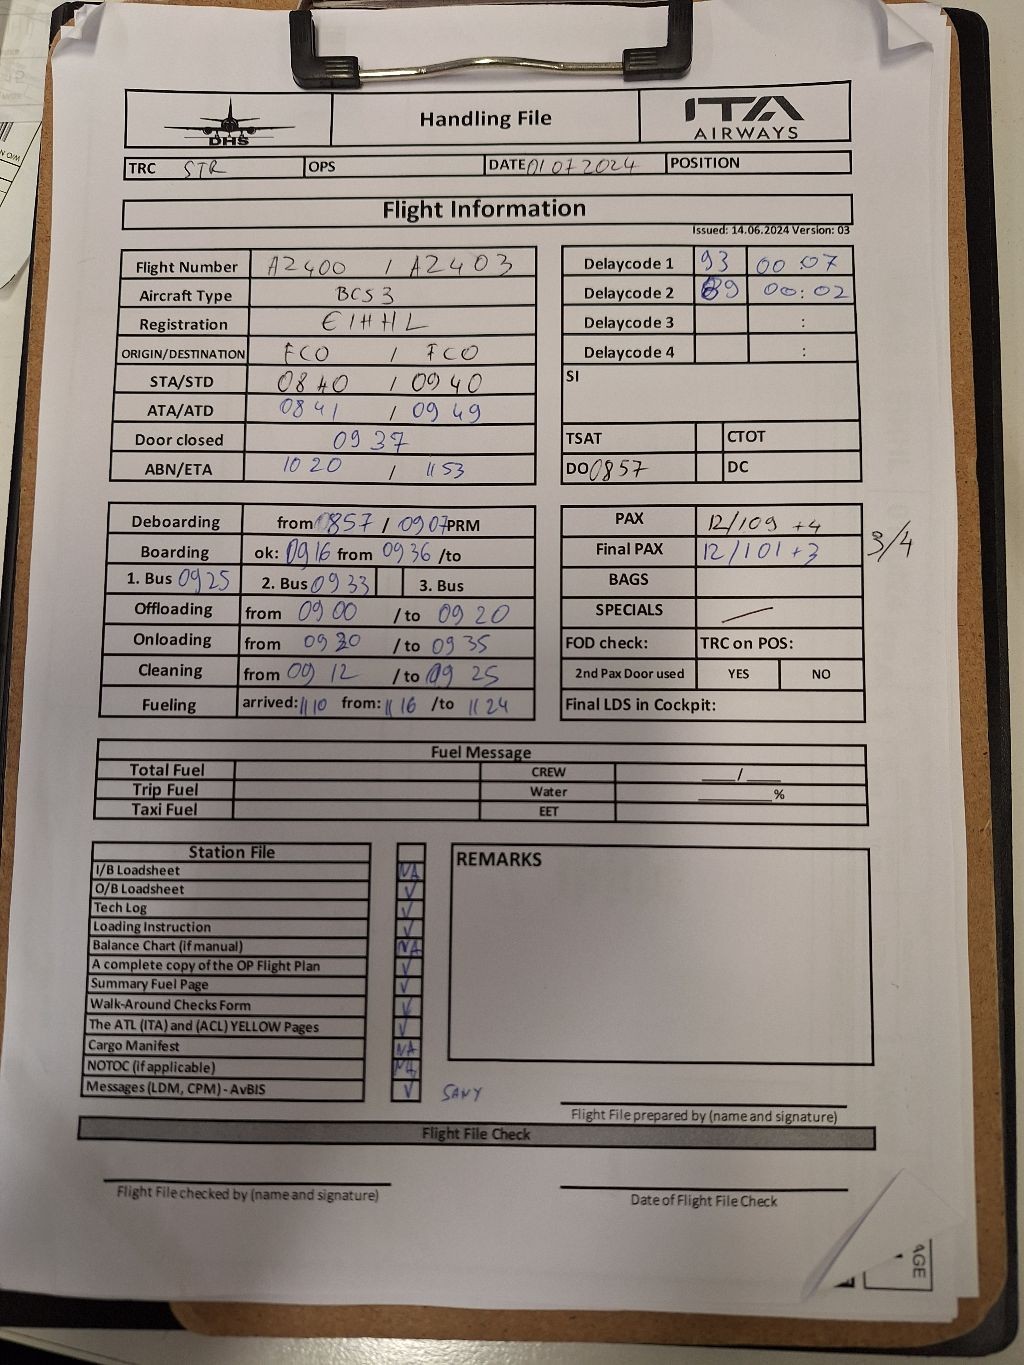 DHS Handling File ITA AIRWAYS
TRC STR OPS DATE 01 07 2024 POSITION
Flight Information
Issued: 14.06.2024 Version: 03
Flight Number AZ400 / AZ403
Aircraft Type BCS3
Registration EIHHL
ORIGIN/DESTINATION FCO / FCO
STA/STD 0840 / 0940
ATA/ATD 0841 / 0949
Door closed 0937
ABN/ETA 1020 / 1153
Delaycode 1 93 00:07
Delaycode 2 89 00:02
Delaycode 3 :
Delaycode 4 :
SI
TSAT CTOT
DO 0857 DC
Deboarding from 0857 / 0907 PRM
Boarding ok: 0916 from 0936 /to
1. Bus 0925 2. Bus 0933 3. Bus
Offloading from 0900 /to 0920
Onloading from 0930 /to 0935
Cleaning from 0912 /to 0925
Fueling arrived: 1110 from: 1116 /to 1124
PAX 12/109 +4
Final PAX 12/101+3 3/4
BAGS
SPECIALS
FOD check: TRC on POS:
2nd Pax Door used YES NO
Final LDS in Cockpit:
Fuel Message
Total Fuel CREW ___/___
Trip Fuel Water ______%
Taxi Fuel EET
Station File
I/B Loadsheet NA
O/B Loadsheet ✓
Tech Log ✓
Loading Instruction ✓
Balance Chart (if manual) NA
A complete copy of the OP Flight Plan ✓
Summary Fuel Page ✓
Walk-Around Checks Form ✓
The ATL (ITA) and (ACL) YELLOW Pages ✓
Cargo Manifest NA
NOTOC (if applicable) NA
Messages (LDM, CPM) - AvBIS ✓
REMARKS
SANY
Flight File prepared by (name and signature)
Flight File Check
Flight File checked by (name and signature)
Date of Flight File Check
AGE